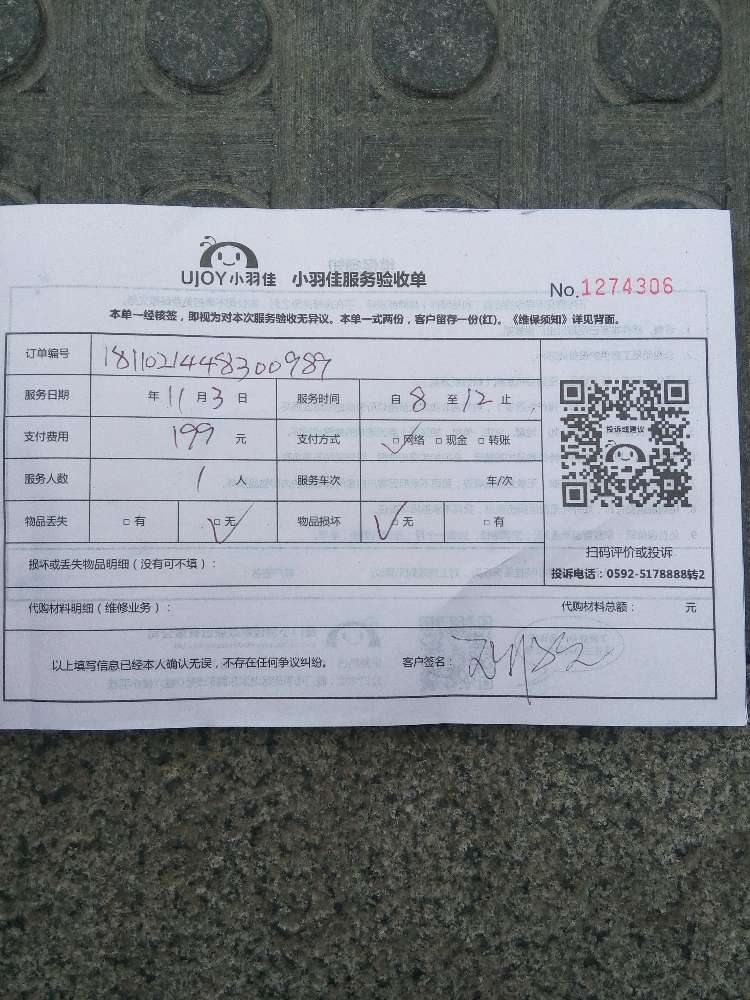 UJOY小羽佳 小羽佳服务验收单
No.1274306
本单一经核签，即视为对本次服务验收无异议。本单一式两份，客户留存一份(红)。《维保须知》详见背面。
订单编号 1811021448300989
服务日期 年 11 月 3 日 服务时间 自 8 至 12 止
支付费用 199 元 支付方式 □网络 □现金 □转账
投诉或建议
服务人数 1 人 服务车次 车/次
物品丢失 □有 □无 物品损坏 □无 □有
扫码评价或投诉
损坏或丢失物品明细（没有可不填）：
投诉电话：0592-5178888转2
代购材料明细（维修业务）： 代购材料总额： 元
以上填写信息已经本人确认无误，不存在任何争议纠纷。 客户签名：